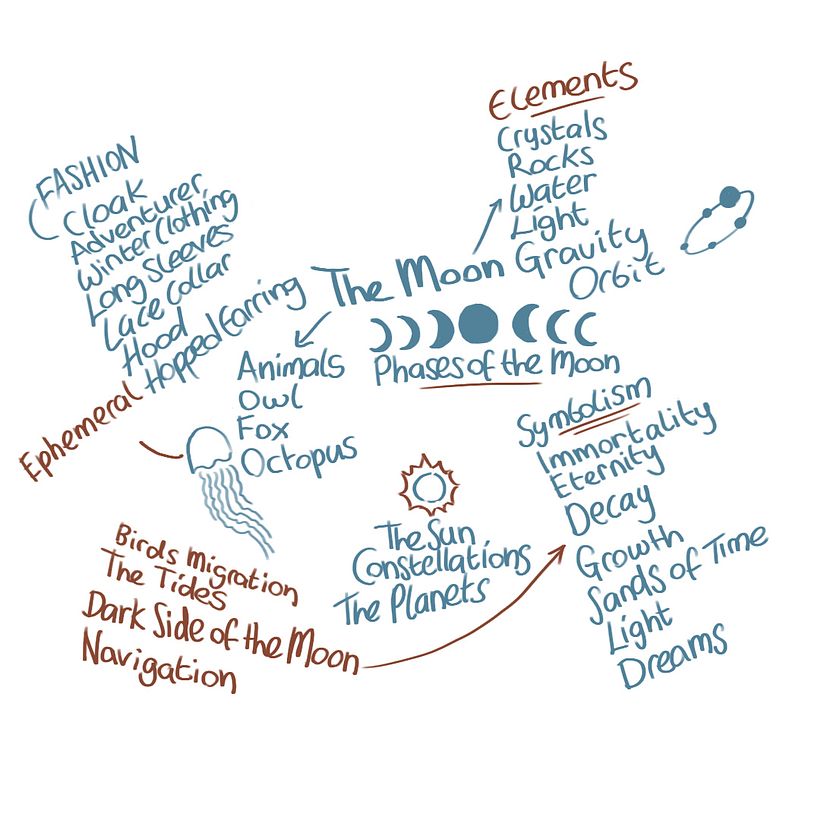 FASHION
Cloak
Adventurer,
Winter Clothing
Long Sleeves
Lace Collar
Hood
Hopped Earring
Elements
Crystals
Rocks
Water
Light
Gravity
Orbit
The Moon
Phases of the Moon
Animals
Owl
Fox
Octopus
Ephemeral
Symbolism
Immortality
Eternity
Decay
Growth
Sands of Time
Light
Dreams
The Sun,
Constellations
The Planets
Birds Migration
The Tides
Dark Side of the Moon
Navigation